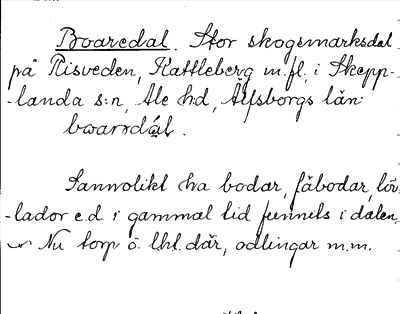 Boaredal. Stor skogsmarksdal
på Risveden, Kattleberg m.fl. i Skepp-
-landa s:n, Ale hd, Älfsborgs län:
bωardál.
Sannolikt ha bodar, fäbodar, löf-
-lador e.d. i gammal tid funnits i dalen.
Nu torp o. lht. där, odlingar m.m.